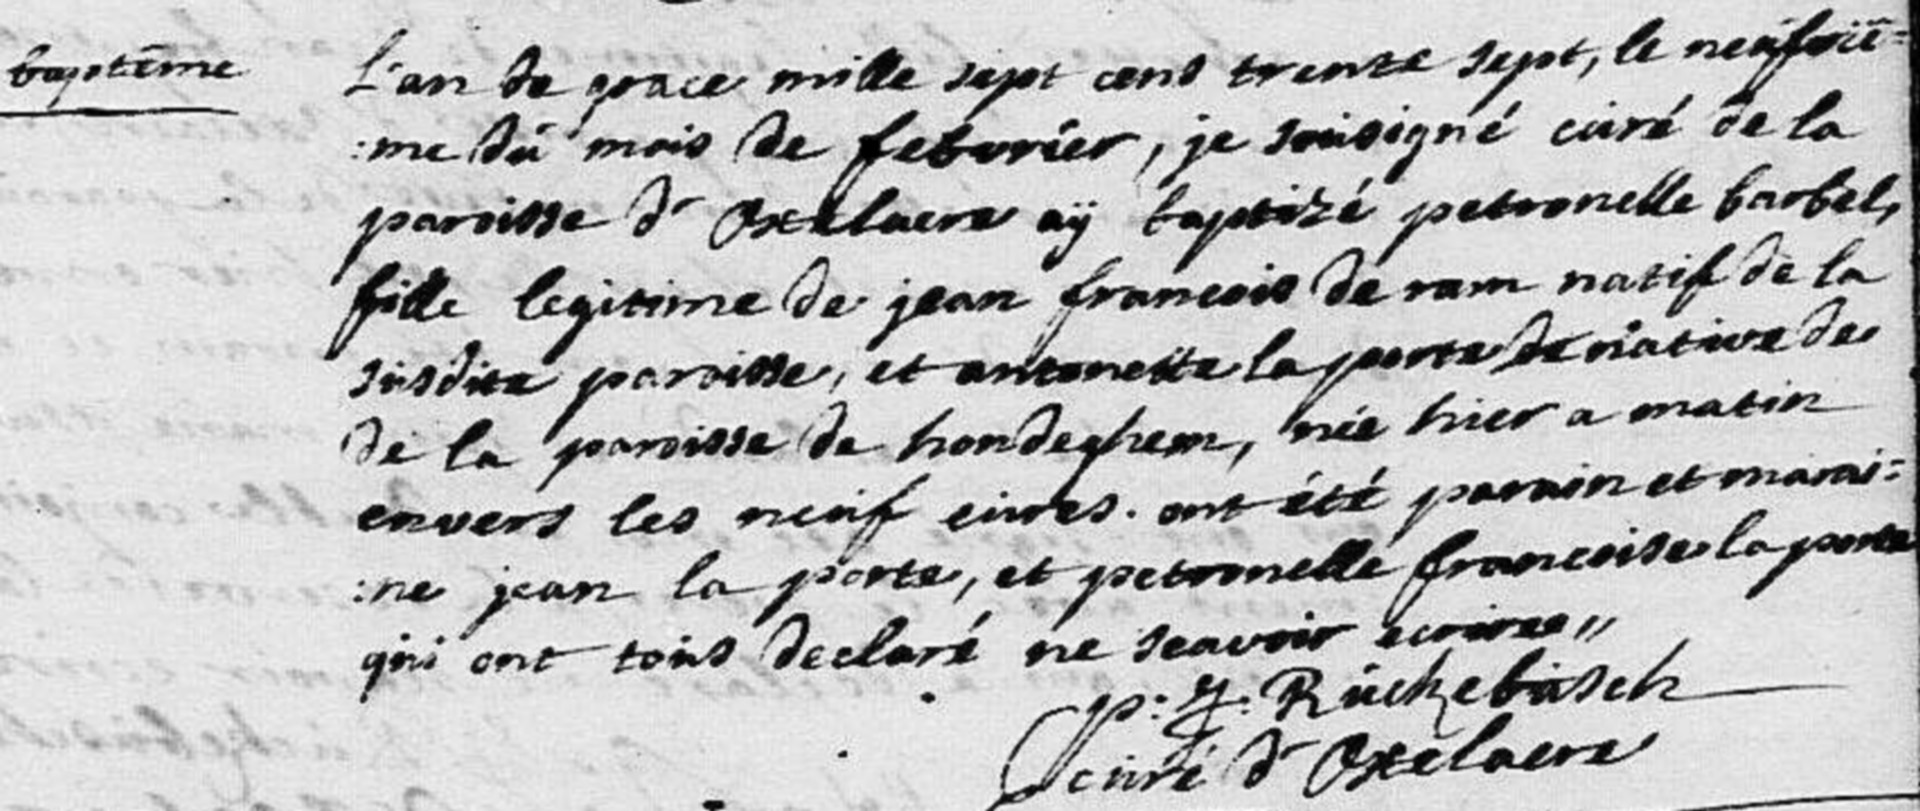 baptême
L'an de grace mille sept cens trente sept, le neufvië=
:me dú mois de febvrier, je soúsigné cúré de la
paroisse d' Oxelaere aÿ baptizé petronelle barbel,
fille legitime de jean francois de ram natif de la
súsdite paroisse, et antonette la porte native de
de la paroisse de hondeghem, née hier a matin
envers les neúf eúres. ont été parain et marai=
:ne jean la porte, et petronelle francoise la porte
qúi ont toús declaré ne scavoir ecrire,,
p: J: Rúckebúsch
cúré d' Oxelaere